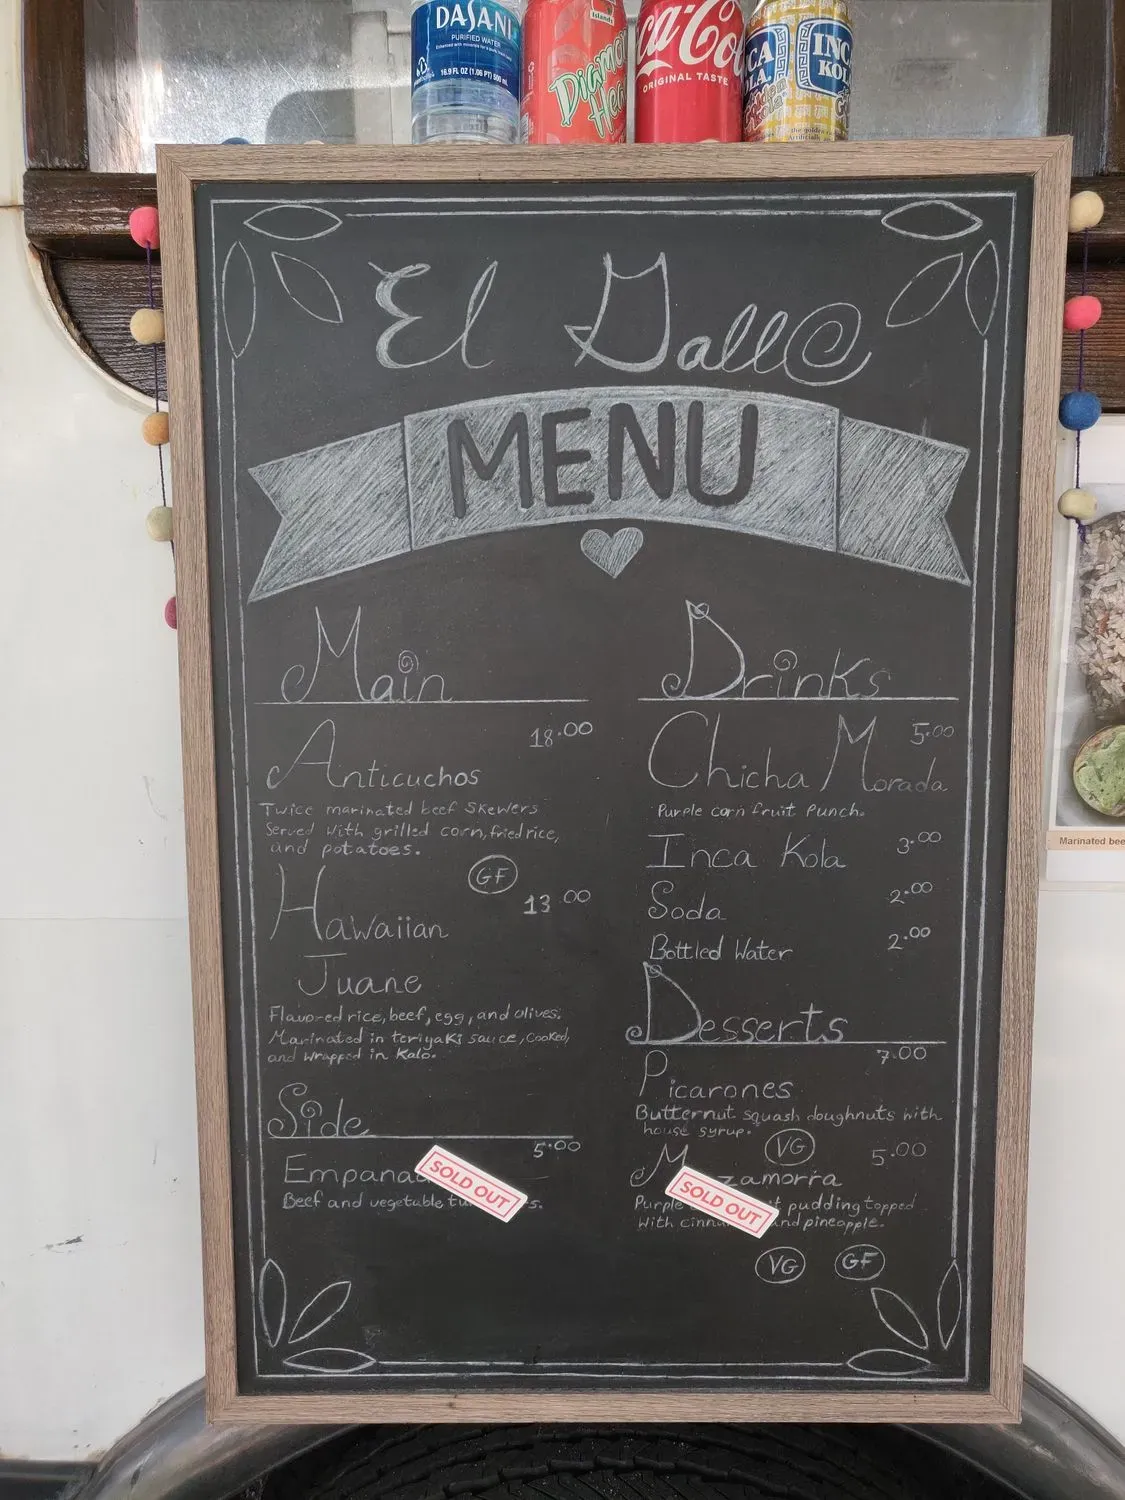 DASANI
PURIFIED WATER
16.9 FL OZ (1.06 PT) 500 mL
Islands
Coca-Cola
ORIGINAL TASTE
INCA
KOLA
El Gallo
MENU
Main
Anticuchos 18.00
Twice marinated beef skewers
Served with grilled corn, fried rice,
and potatoes.
GF
Hawaiian 13.00
Juane
Flavored rice, beef, egg, and olives.
Marinated in teriyaki sauce, cooked,
and wrapped in Kalo.
Side
5.00
Empanad
SOLD OUT
Beef and vegetable
Drinks
Chicha Morada 5.00
Purple corn fruit Punch.
Inca Kola 3.00
Soda 2.00
Bottled Water 2.00
Desserts
Picarones 7.00
Butternut squash doughnuts with
house syrup.
VG
M zamorra 5.00
SOLD OUT
Purple pudding topped
With and pineapple.
VG GF
Marinated bee